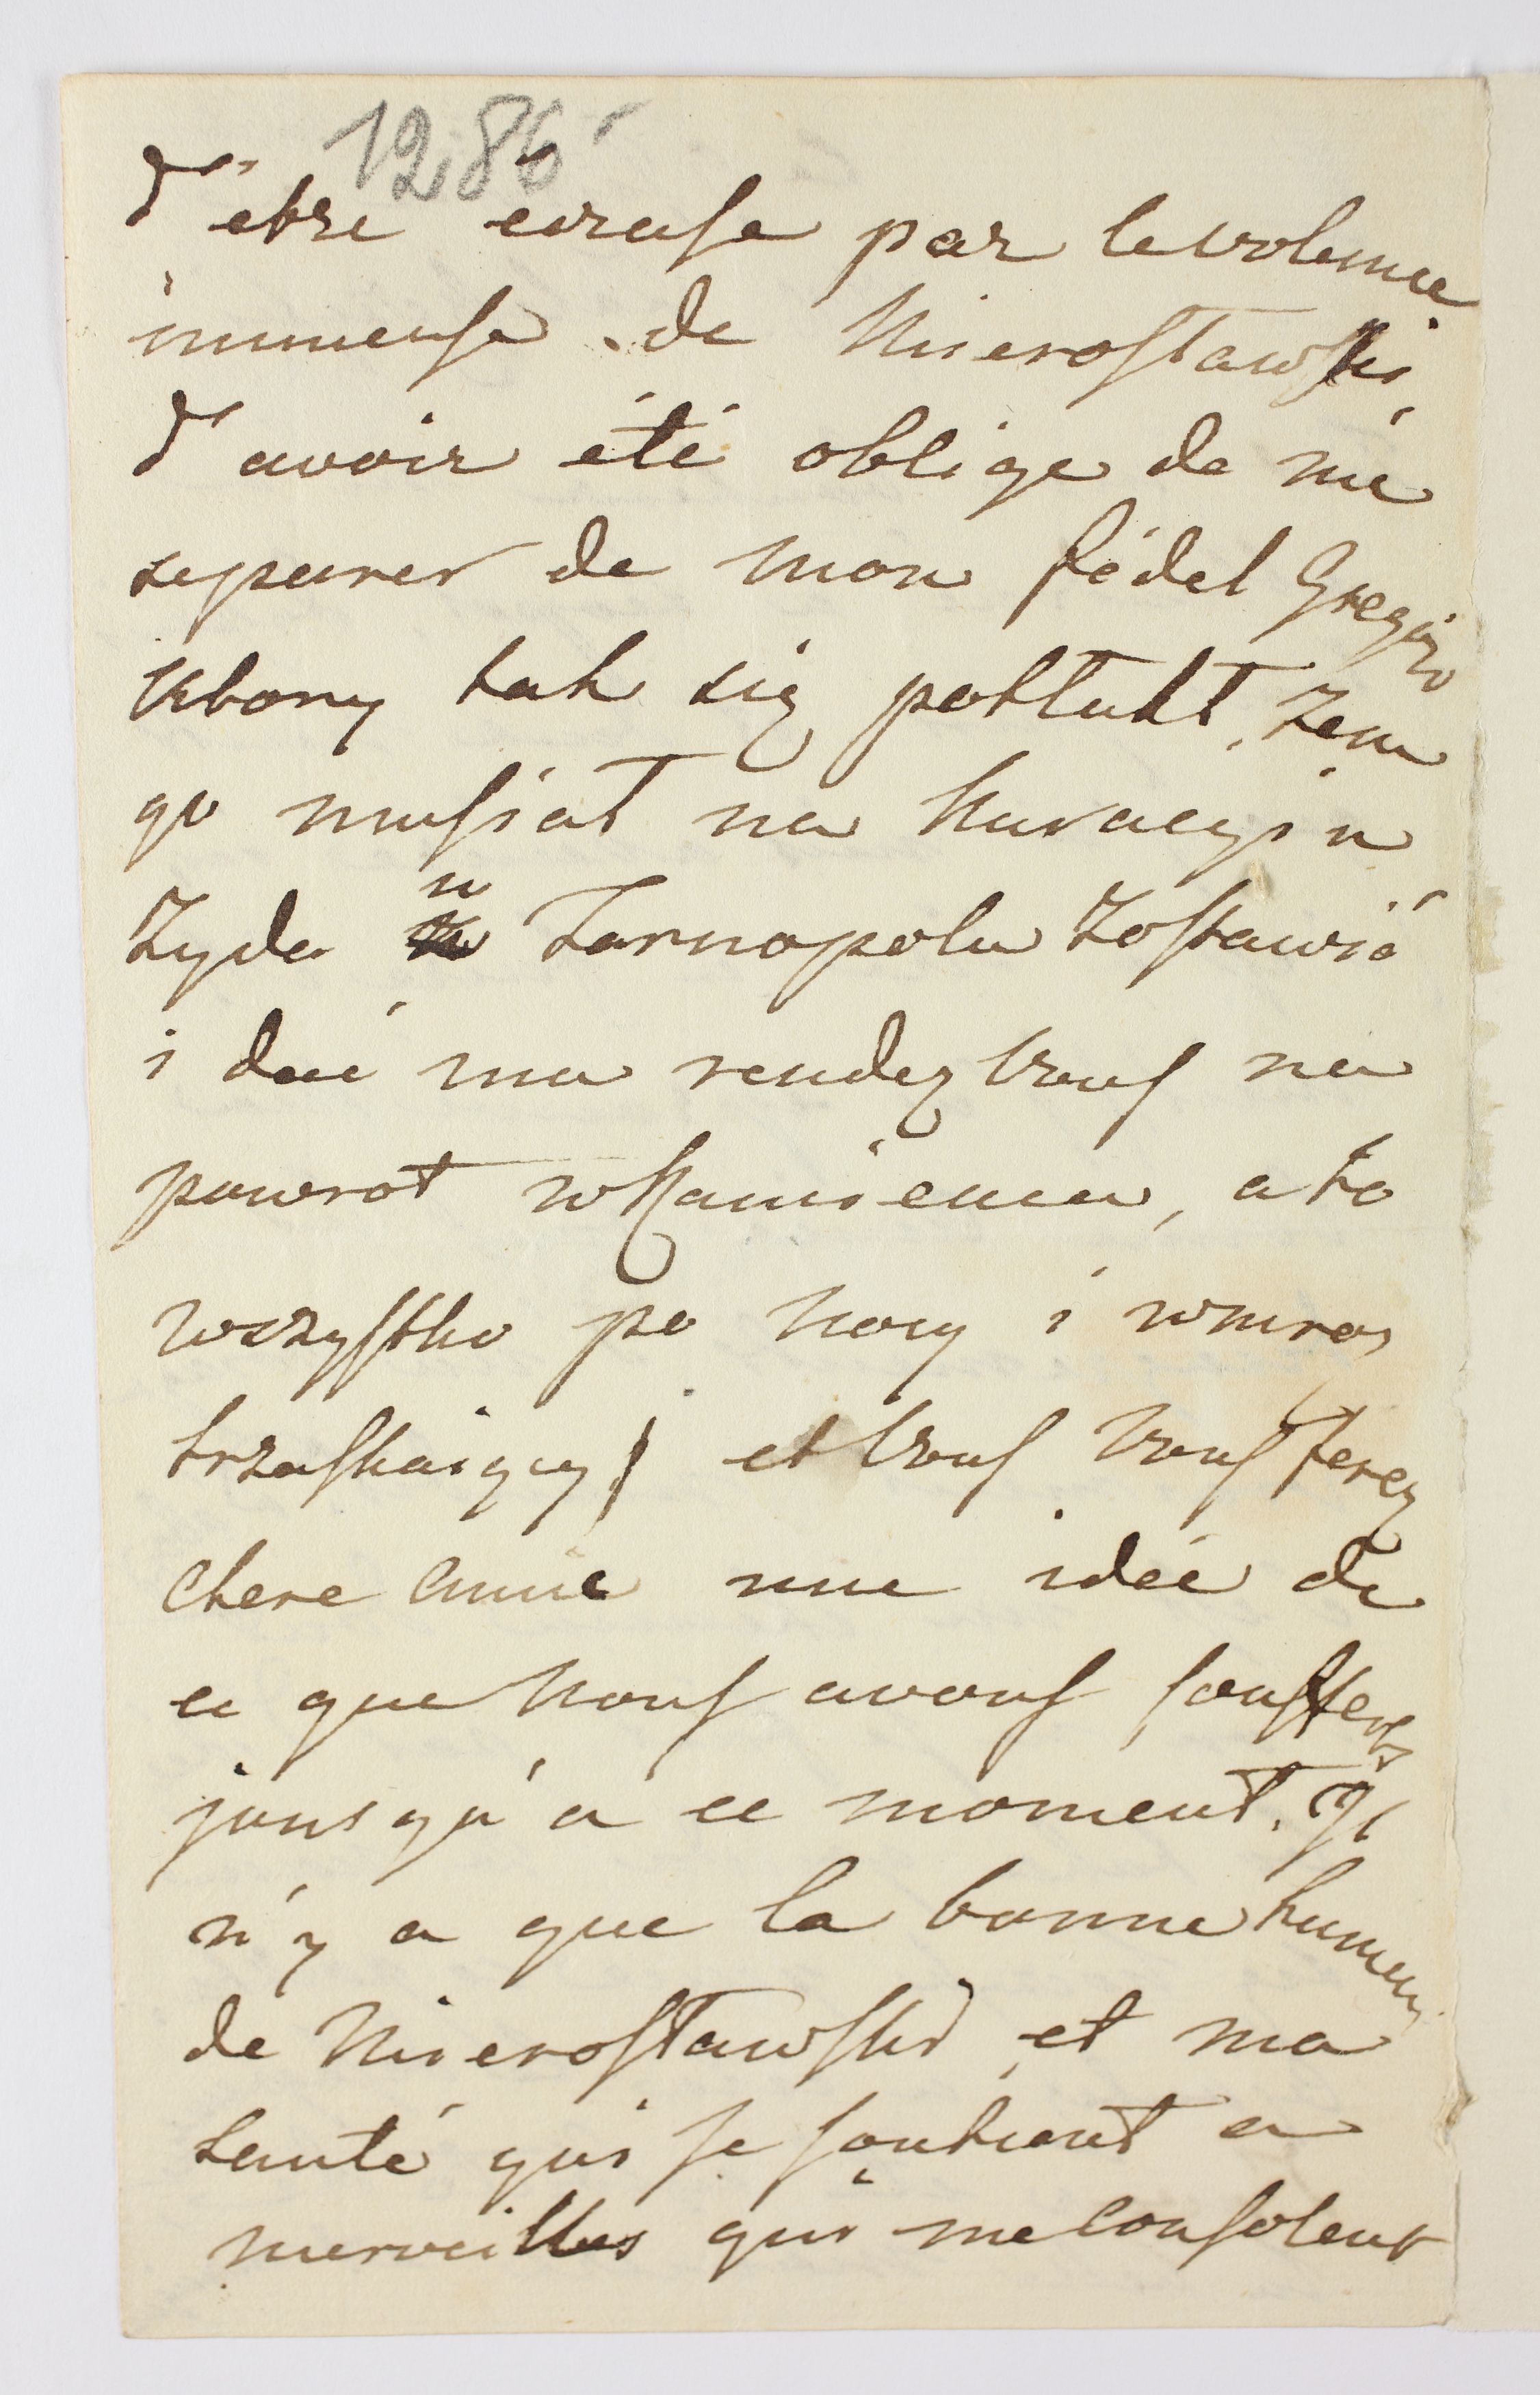 1286
d'etre ecrase par le volume
immense de Mierosławski,
d'avoir été oblige de me
separer de mon fédel Gregoir
ktory tak się potłukł, żem
go musiał na kuracyi u
Żyda w Tarnopolu zostawić
i dać mu rendez vous na
powrot w Kamiencu, a to
wszystko po nocy i w mroz
trzaskaiący, et vous vous ferez
chere amie une idée de
ce que nous avons soufferts
jousqu'a ce moment. Il
n'y a que la bonne humeur
de Mierosławski et ma
santé qui se soutient a
merveilles qui me consolent